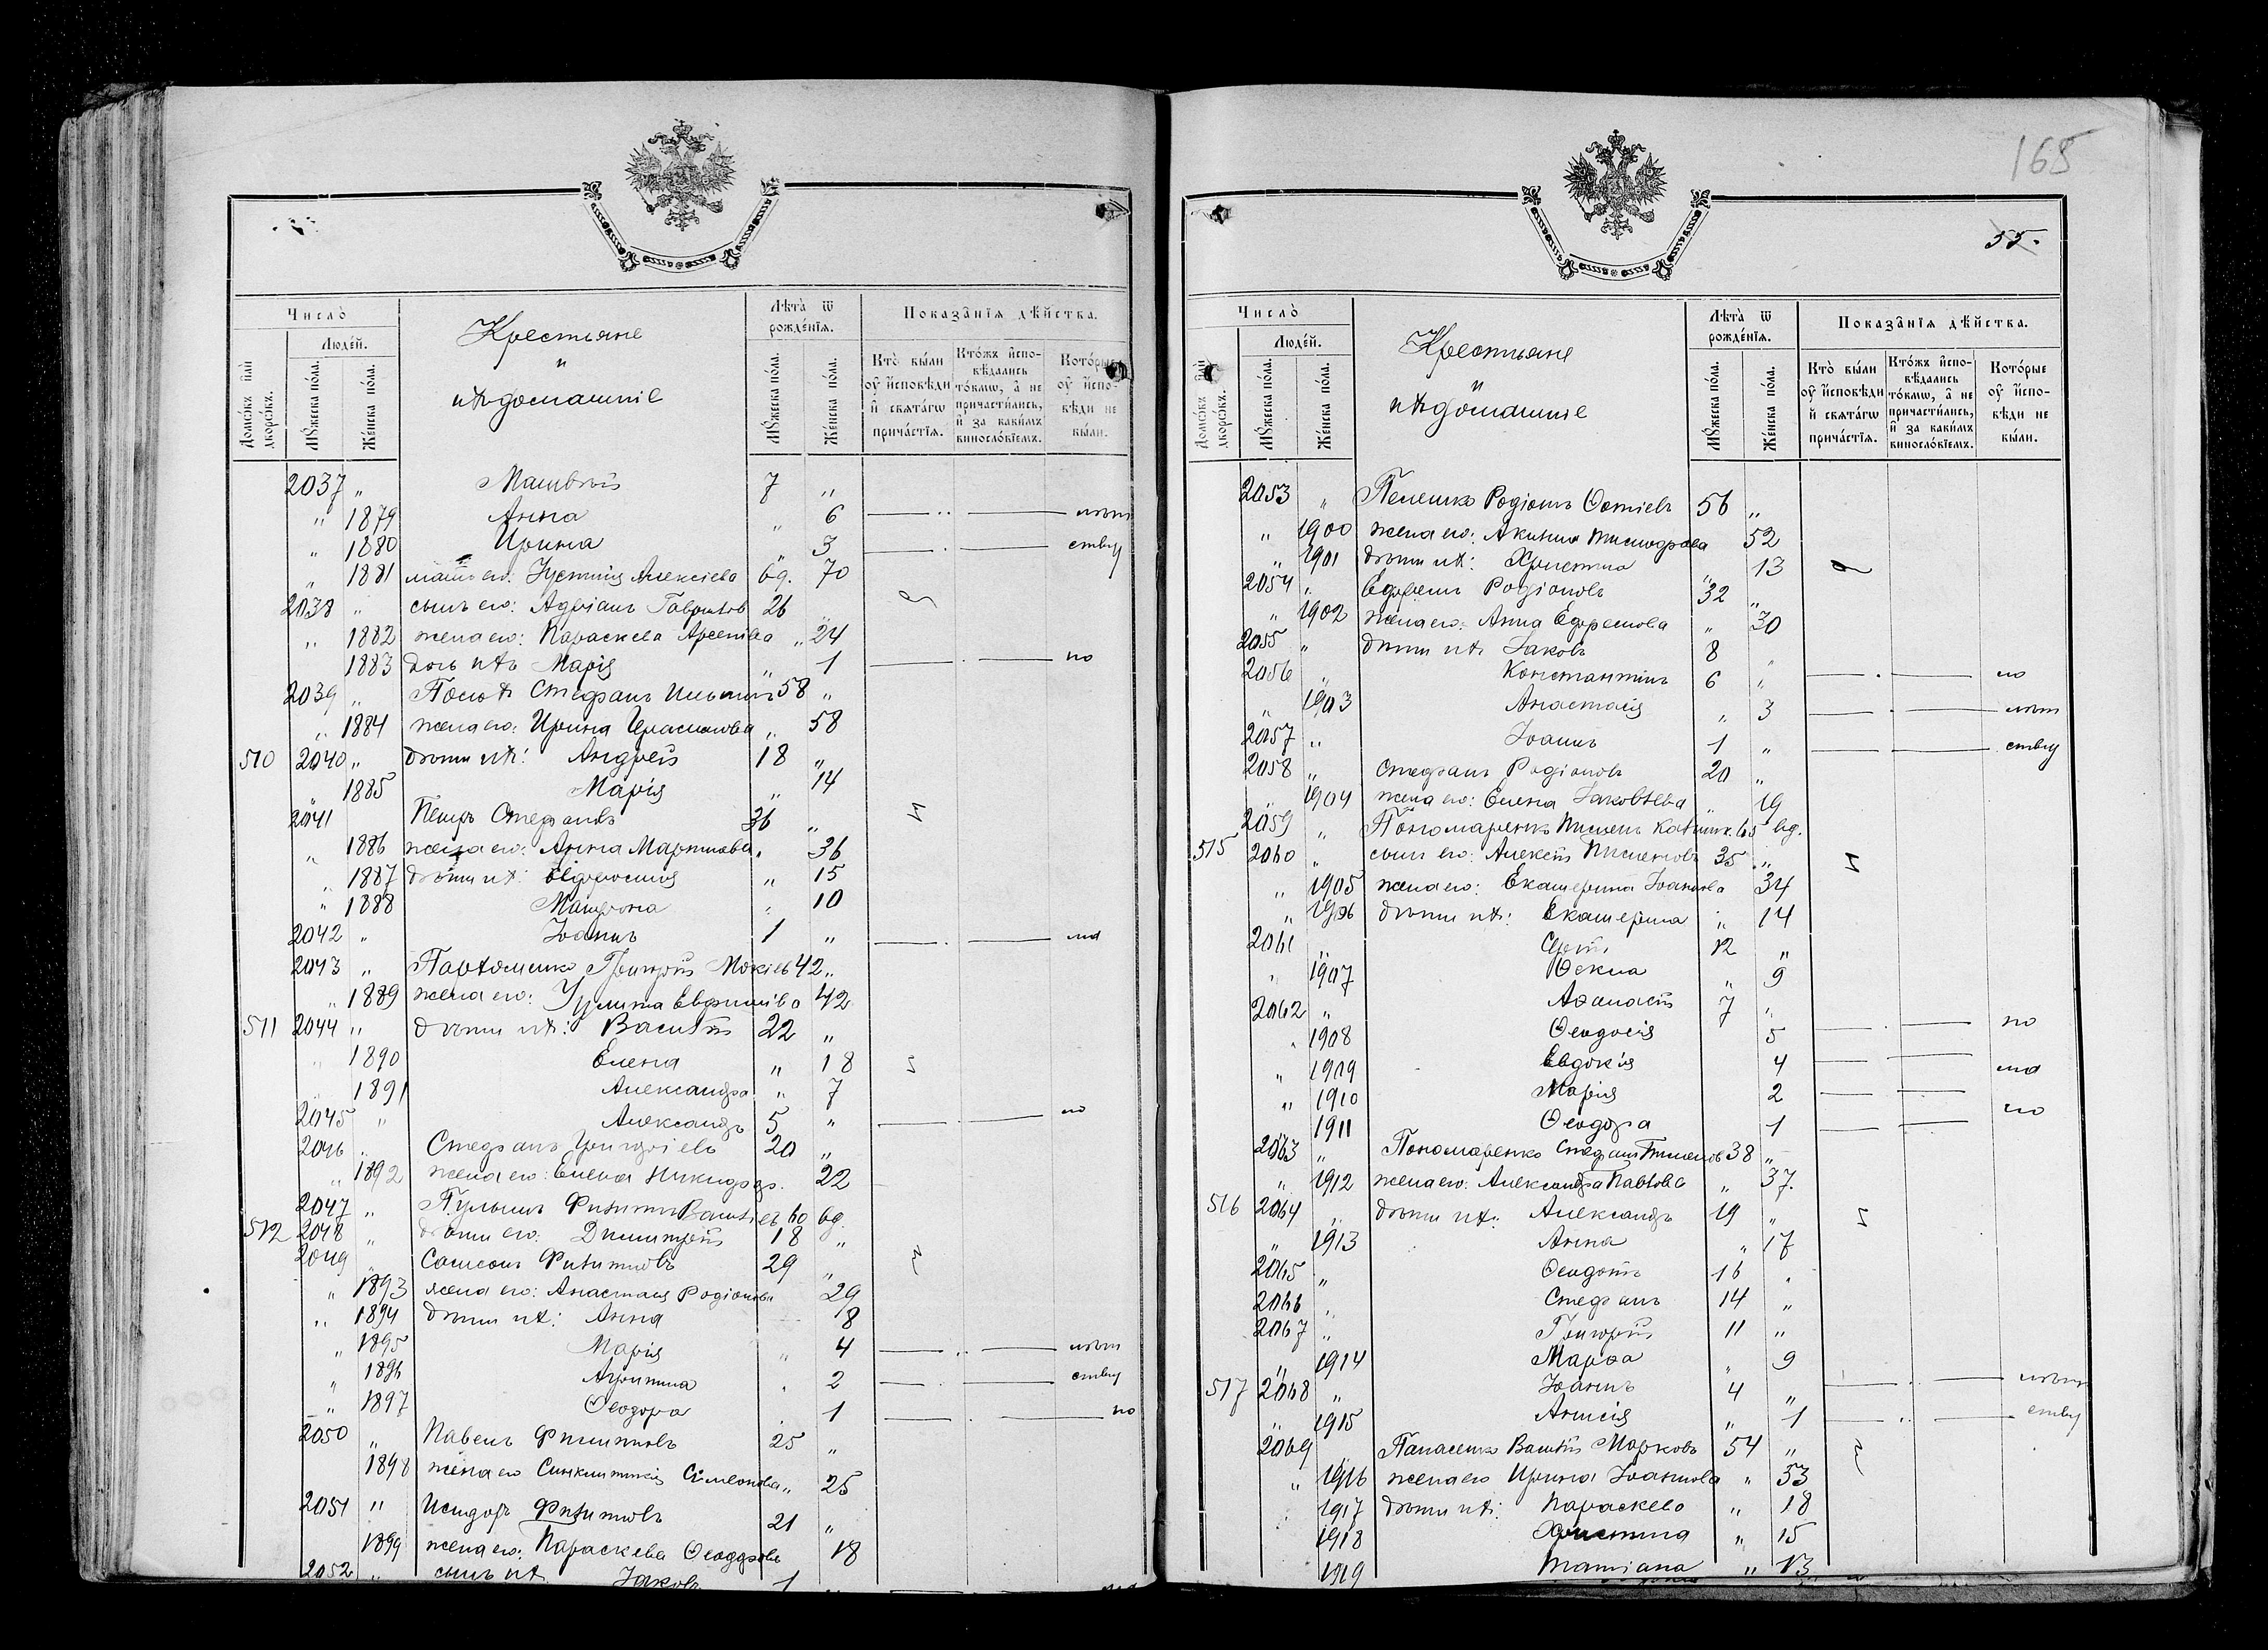 Число̀
Людéй.
Домѡ́въ и҆лѝ дворѡ́въ.
Мꙋ́жеска по́ла.
Же́нска по́ла.
Крестьяне
и
ихъ домашніе
Лѣ́та ѿ
рожде́нїѧ.
Мꙋ́жеска по́ла.
Же́нска по́ла.
Показа̑нїѧ дѣ́йства.
Кто̀ бы́ли
оу҆ и҆сповѣ́ди
и҆ свѧта́гѡ
прича́стїѧ.
Кто́жъ и҆спо-
вѣ́дались
то́кмѡ, а҆ не
причасти́лись,
и҆ за каки́мъ
винословїемъ.
Кото́рые
оу҆ и҆спо-
вѣ́ди не
бы́ли.
2037 „ Матвѣй 7 „
„ 1879 Анна „ 6
„ 1880 Ирина „ 3
„ 1881 мать его: Іустинія Алексіева вд. 70
2038 „ сынъ его: Адріанъ Гавриловъ 26 „
„ 1882 жена его: Параскева Арсеніева „ 24
1883 дочь ихъ Марія „ 1 по
2039 „ Стефанъ 58 „
„ 1884 жена его: Ирина Герасимова „ 58
510 2040 „ дѣти ихъ: Андрей 18 „
„ 1885 Марія „ 14
2041 Петръ Стефановъ 36 „
„ 1886 жена его: Анна Мартинова „ 36
„ 1887 дѣти ихъ: Евфросинія „ 15
„ 1888 Матрона „ 10
2042 „ Іоаннъ 1 „
2043 „ Пархоменко Григорій Мокіевъ 42 „
„ 1889 жена его: Улита Евфиміева 42
511 2044 „ дѣти ихъ: Василій 22 „
1890 Елена „ 18
1891 Александра „ 7
2045 „ Александръ 5 „
2046 „ Стефанъ Григоріевъ 20 „
„ 1892 жена его: Елена Никифор. 22
2047 „ Филиппъ 60 вд.
512 2048 „ дѣти его: Димитрій 18 „
2049 „ Самсонъ Филипповъ 29 „
„ 1893 жена его: Анастасія Родіонова 29
„ 1894 дѣти ихъ: Анна 8
„ 1895 Марія „ 4
„ 1896 Агрипина „ 2
„ 1897 Ѳеодора „ 1 по
2050 „ Павелъ Филипповъ 25 „
1898 жена его Синклитикія Симеонова „ 25
2051 „ Исидоръ Филипповъ 21 „
1899 жена его: Параскева Ѳеодорова 18
2052 „ сынъ ихъ Іаковъ 1 „
165
55.
Число̀
Людéй.
Домѡ́въ и҆лѝ дворѡ́въ.
Мꙋ́жеска по́ла.
Же́нска по́ла.
Крестьяне
и
ихъ домашніе
Лѣ́та ѿ
рожде́нїѧ.
Мꙋ́жеска по́ла.
Же́нска по́ла.
Показа̑нїѧ дѣ́йства.
Кто̀ бы́ли
оу҆ и҆сповѣ́ди
и҆ свѧта́гѡ
прича́стїѧ.
Кто́жъ и҆спо-
вѣ́дались
то́кмѡ, а҆ не
причасти́лись,
и҆ за каки́мъ
винословїемъ.
Кото́рые
оу҆ и҆спо-
вѣ́ди не
бы́ли.
2053 „ Родіонъ 56 „
„ 1900 жена его: 52
„ 1901 дѣти ихъ: Христина 13
2054 „ Ефремъ Родіоновъ 32 „
„ 1902 жена его: Анна Ефремова „ 30
2055 „ дѣти ихъ: Іаковъ 8
2056 Константинъ 6 „
„ 1903 Анастасія „ 3
2057 „ Іоаннъ 1 „
2058 „ Стефанъ Родіоновъ 20 „
„ 1904 жена его: Елена Іаковлева „ 19
2059 „ Пономаренко 65 вд.
515 2060 „ сынъ его: Алексѣй 35 „
„ 1905 жена его: Екатерина Іоаннова 34
„ 1906 дѣти ихъ: Екатерина „ 14
2061 „ 12 „
„ 1907 Ѳекла 9
2062 „ Аѳанасій 7 „
„ 1908 Ѳеодосія 5 по
„ 1909 Евдокія 4
„ 1910 Марія 2
1911 Ѳеодора 1
2063 „ Пономаренко Стефанъ 38 „
„ 1912 жена его: Александра Павлова „ 37.
516 2064 „ дѣти ихъ: Александръ 19 „
„ 1913 Анна „ 17
2065 „ Ѳеодотъ 16 „
2066 „ Стефанъ 14 „
2067 „ Григорій 11 „
„ 1914 Марѳа „ 9
517 2068 „ Іоаннъ 4 „
„ 1915 „ 1
2069 „ Панасенко Василій Марковъ 54 „
„ 1916 жена его Ирина Іоаннова „ 53
1917 дѣти ихъ: Параскева „ 18
1918 Христина „ 15
1919 Татіана „ 13